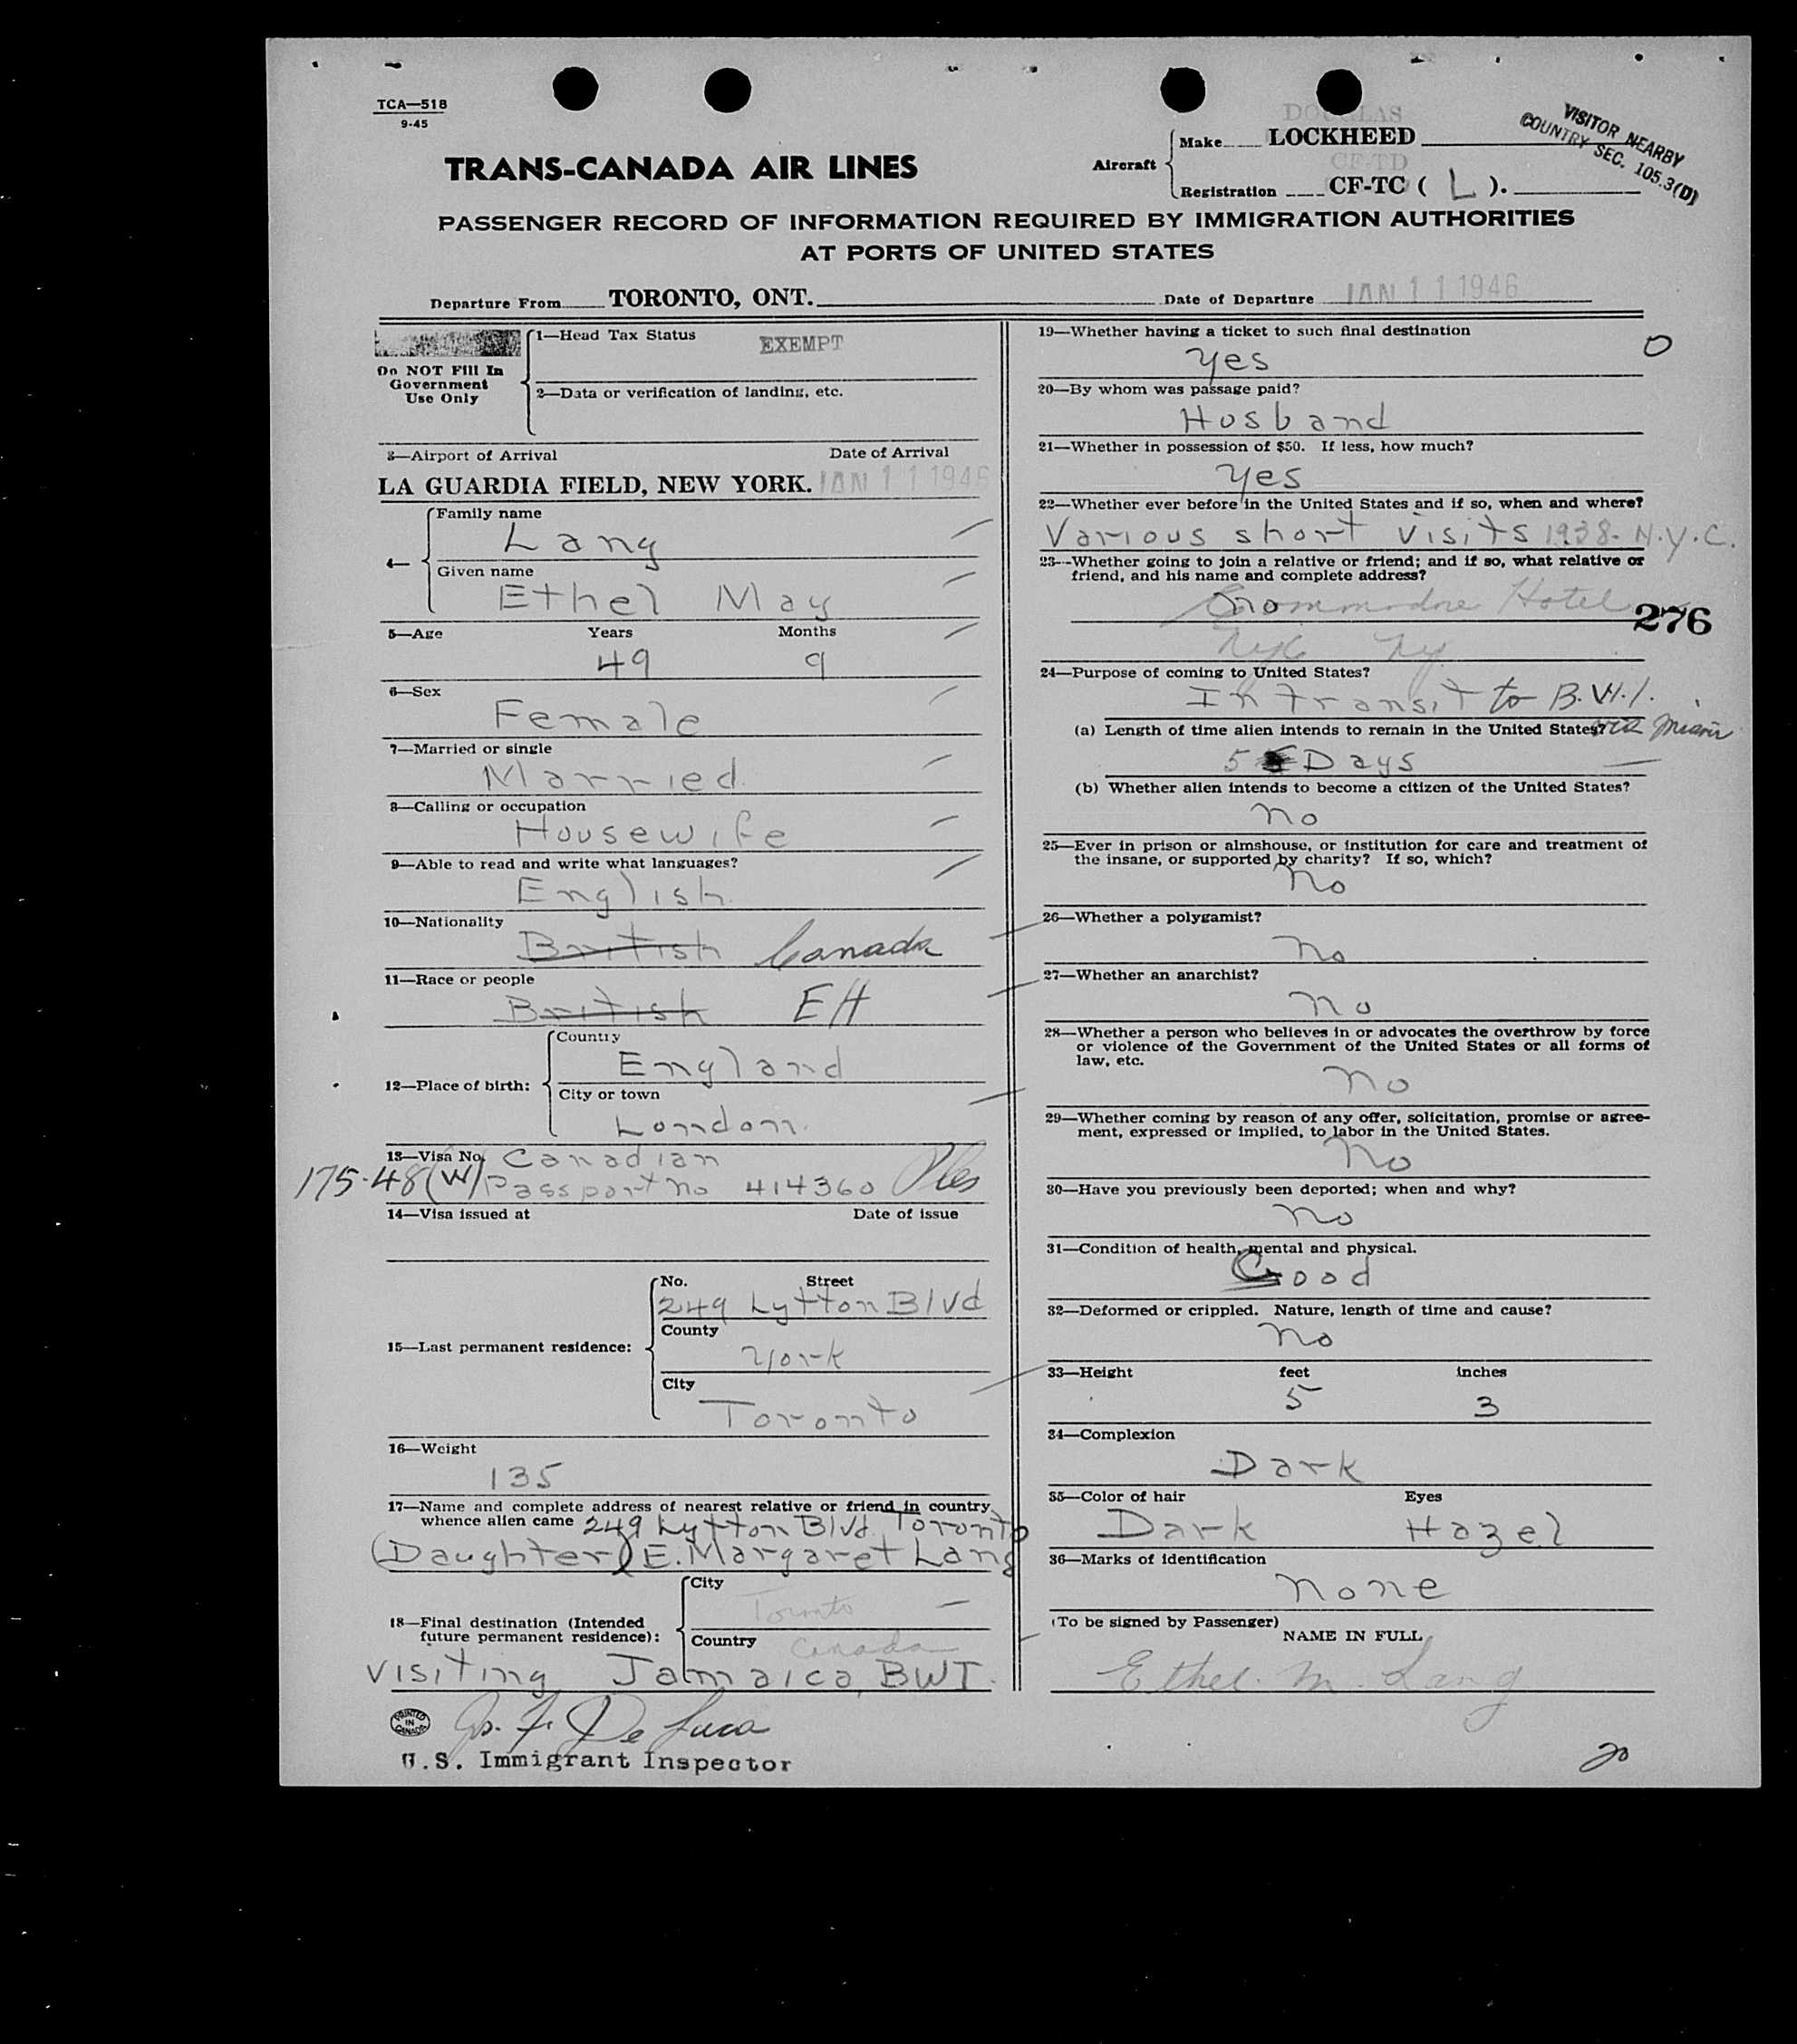 TCA—518
9-45
VISITOR NEARBY
COUNTRY SEC. 105.3(D)
DOUGLAS
Aircraft Make LOCKHEED
CF-TD
Registration CF-TC ( L ).
TRANS-CANADA AIR LINES
PASSENGER RECORD OF INFORMATION REQUIRED BY IMMIGRATION AUTHORITIES
AT PORTS OF UNITED STATES
Departure From TORONTO, ONT. Date of Departure JAN 11 1946
Do NOT Fill In
Government
Use Only
1—Head Tax Status EXEMPT
2—Data or verification of landing, etc.
3—Airport of Arrival Date of Arrival
LA GUARDIA FIELD, NEW YORK. JAN 11 1946
4—
Family name
Lang
Given name
Ethel May
5—Age Years Months
49 9
6—Sex
Female
7—Married or single
Married
8—Calling or occupation
Housewife
9—Able to read and write what languages?
English
10—Nationality
British Canada
11—Race or people
British EH
12—Place of birth:
Country
England
City or town
London.
13—Visa No. Canadian
175-48(W) Passport No 414360
14—Visa issued at Date of issue
15—Last permanent residence:
No. Street
249 Lytton Blvd
County
York
City
Toronto
16—Weight
135
17—Name and complete address of nearest relative or friend in country
whence alien came 249 Lytton Blvd Toronto
(Daughter) E. Margaret Lang
18—Final destination (Intended
future permanent residence):
City
Toronto
Country Canada
visiting Jamaica, BWI.
PRINTED IN CANADA
De Luca
U.S. Immigrant Inspector
19—Whether having a ticket to such final destination
yes
0
20—By whom was passage paid?
Husband
21—Whether in possession of $50. If less, how much?
yes
22—Whether ever before in the United States and if so, when and where?
Various short visits 1938- N.Y.C.
23—Whether going to join a relative or friend; and if so, what relative or
friend, and his name and complete address?
no Commodore Hotel
276
NYC NY
24—Purpose of coming to United States?
In transit to B.W.I.
via Miami
(a) Length of time alien intends to remain in the United States?
5 Days
(b) Whether alien intends to become a citizen of the United States?
no
25—Ever in prison or almshouse, or institution for care and treatment of
the insane, or supported by charity? If so, which?
no
26—Whether a polygamist?
no
27—Whether an anarchist?
no
28—Whether a person who believes in or advocates the overthrow by force
or violence of the Government of the United States or all forms of
law, etc.
no
29—Whether coming by reason of any offer, solicitation, promise or agree-
ment, expressed or implied, to labor in the United States.
no
30—Have you previously been deported; when and why?
no
31—Condition of health, mental and physical.
Good
32—Deformed or crippled. Nature, length of time and cause?
no
33—Height feet inches
5 3
34—Complexion
Dark
35—Color of hair Eyes
Dark Hazel
36—Marks of identification
none
(To be signed by Passenger)
NAME IN FULL
Ethel. M. Lang
20